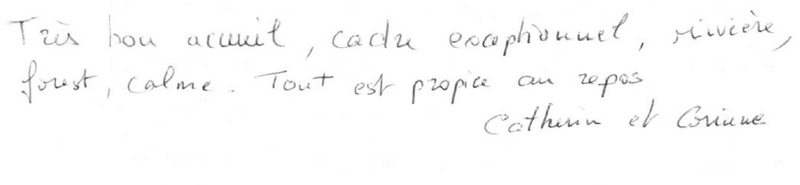 Très bon accueil, cadre exceptionnel, rivière,
forest, calme. Tout est propice au repos
Catherin et Corinne